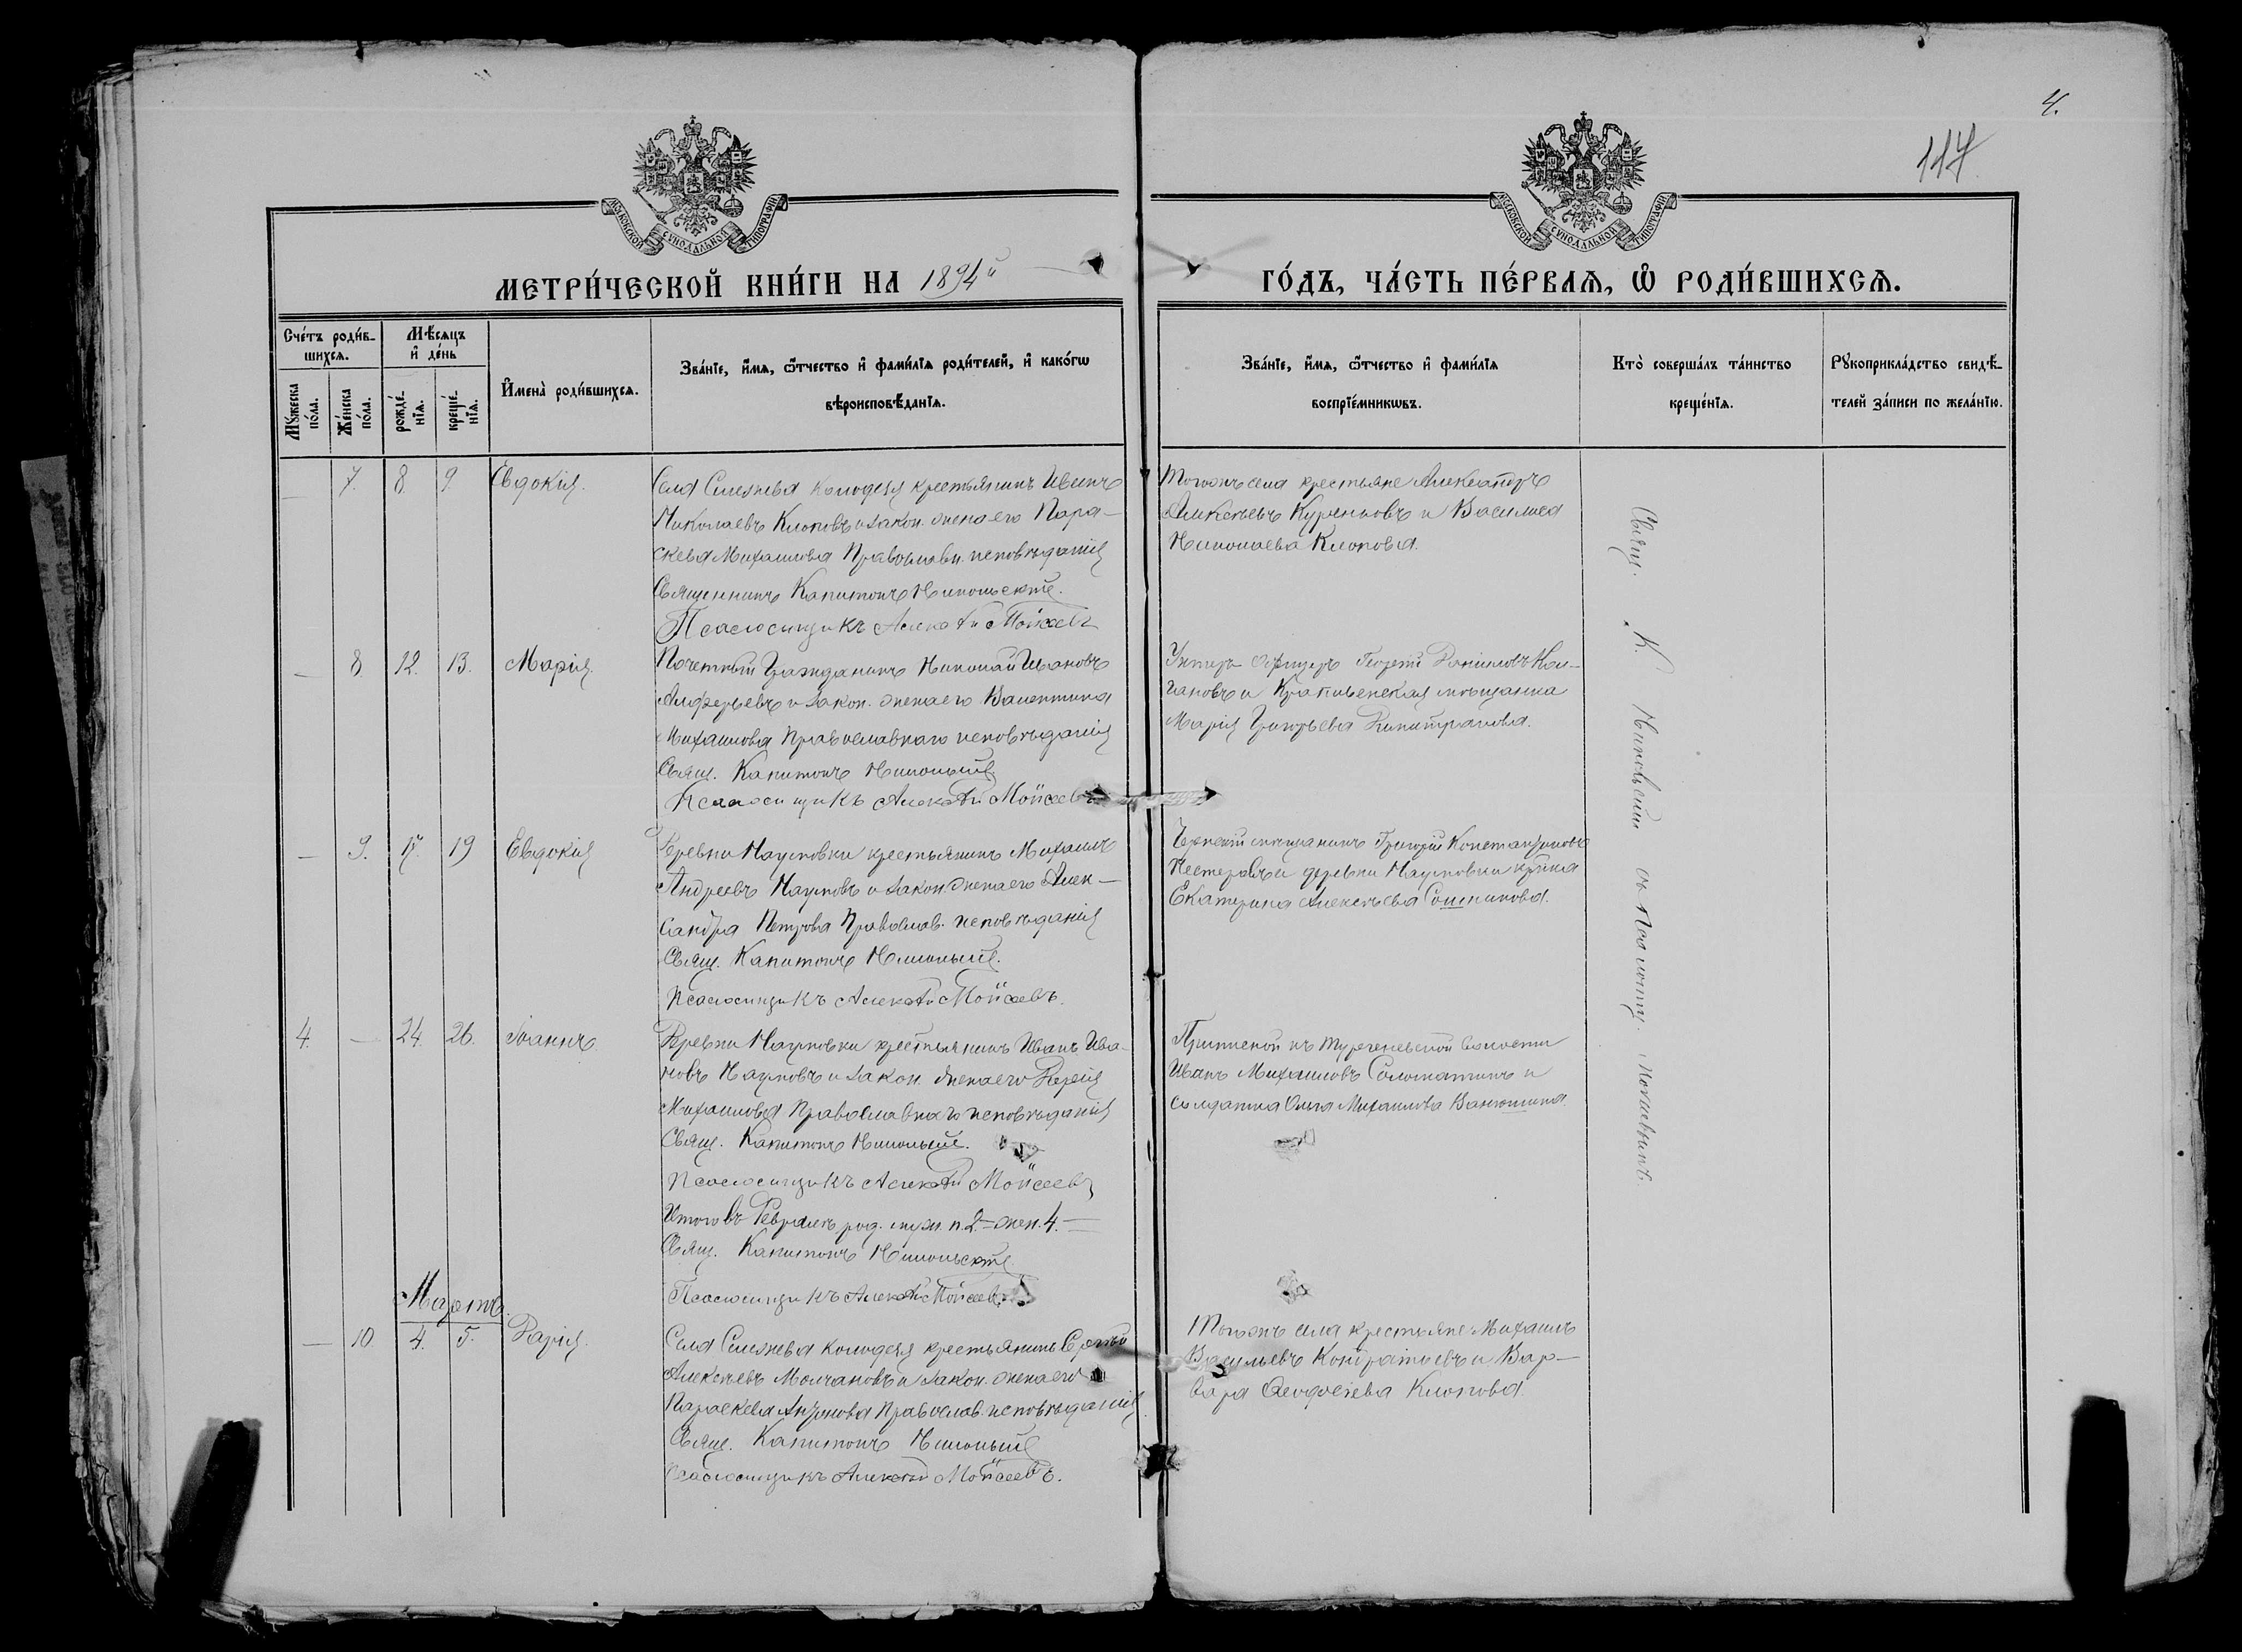 4.
117
МОСКОВСКОЙ СѴНОДАЛЬНОЙ ТИПОГРАФІИ
МОСКОВСКОЙ СѴНОДАЛЬНОЙ ТИПОГРАФІИ
МЕТРИ́ЧЕСКОЙ КНИ́ГИ НА 1894й
ГО́ДЪ, ЧА́СТЬ ПЕ́РВАѦ, Ѿ РОДИ́ВШИХСѦ.
Сче́тъ роди́в-
шихсѧ.
Мꙋ́жеска по́ла.
Же́нска по́ла.
Мѣ́сѧцъ
и҆ де́нь
рожде́-
нїѧ.
креще́-
нїѧ.
И҆мена̀ роди́вшихсѧ.
Зва́нїе, и҆́мѧ, ѻ҆́тчество и҆ фамѝлїѧ роди́телей, и҆ како́гѡ
вѣроисповѣ́данїѧ.
Зва́нїе, и҆́мѧ, ѻ҆́тчество и҆ фамѝлїѧ
воспрїе́мникѡвъ.
Кто̀ соверша́лъ та́инство
креще́нїѧ.
Рꙋкоприкла́дство свидѣ́-
телей за́писи по жела́нїю.
— 7 8. 9. Евдокія.
Села Селезнева Колодезя крестьянинъ Иванъ
Николаевъ Клоповъ и закон. жена его Пара-
скева Михаилова Православн. исповѣданія
Священникъ Капитонъ Никольскій.
Псаломщикъ Алексѣй Мойсеевъ
Тогожъ села крестьяне Александръ
Алексѣевъ Куреньковъ и Василиса
Николаева Клопова.
— 8 12. 13. Марія.
Почетный Гражданинъ Николай Ивановъ
Алферьевъ и закон. жена его Валентина
Михаилова Православнаго исповѣданія
Свящ. Капитонъ Никольскій
Псаломщикъ Алексѣй Мойсеевъ
Унтеръ Офицеръ Георгій Даниловъ Кол-
гановъ и Крапивенская мѣщанка
Марія Григорьева
— 9. 17. 19 Евдокія
Деревни Наумовки крестьянинъ Михаилъ
Андреевъ Наумовъ и закон. жена его Алек-
сандра Петрова Православ. исповѣданія
Свящ. Капитонъ Никольскій.
Псаломщикъ Алексѣй Мойсеевъ.
Чернскій мѣщанинъ Григорій Константиновъ
Нестеровъ и деревни Наумовки кр-нка
Екатерина Алексѣева Сошникова.
4. — 24. 26. Іоаннъ.
Деревни Наумовки крестьянинъ Иванъ Ива-
новъ Наумовъ и закон. жена его Дарія
Михаилова Православнаго исповѣданія
Свящ. Капитонъ Никольскій.
Псаломщикъ Алексѣй Мойсеевъ
Итого въ Февралѣ род. муж. п. 2 — жен. 4. —
Свящ. Капитонъ Никольскій
Псаломщикъ Алексѣй Мойсеевъ.
Приписной къ Тургеневской волости
Иванъ Михаиловъ Соломатинъ и
солдатка Ольга Михаилова Ванюшина.
Мартъ.
— 10 4. 5. Дарія.
Села Селезнева Колодезя крестьянинъ Сергѣй
Алексѣевъ Молчановъ и закон. жена его
Параскева Антонова Православ. исповѣданія
Свящ. Капитонъ Никольскій
Псаломщикъ Алексѣй Мойсеевъ.
Тогожъ села крестьяне Михаилъ
Васильевъ Кондратьевъ и Вар-
вара Ѳеодосіева Клопова.
Свящ. К. Никольскій съ Псаломщ. Мойсеевымъ.